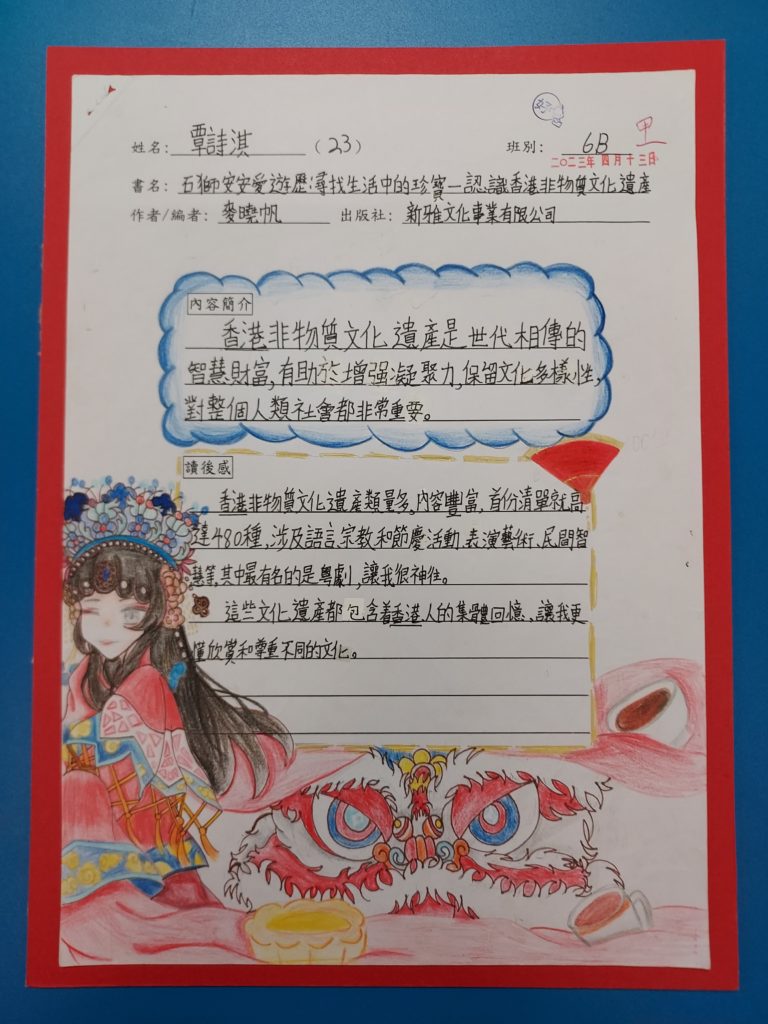 姓名：覃詩淇（23） 班別：6B 甲
二〇二三年 四月 十三日
書名：石獅安安愛遊歷：尋找生活中的珍寶—認識香港非物質文化遺產
作者/編者：麥曉帆 出版社：新雅文化事業有限公司
內容簡介
香港非物質文化遺產是世代相傳的
智慧財富，有助於增强凝聚力，保留文化多樣性，
對整個人類社會都非常重要。
讀後感
香港非物質文化遺產類量多，內容豐富，首份清單就高
達480種，涉及語言、宗教和節慶活動、表演藝術、民間智
慧等，其中最有名的是粵劇，讓我很神往。
這些文化遺產都包含着香港人的集體回憶，讓我更
懂欣賞和尊重不同的文化。